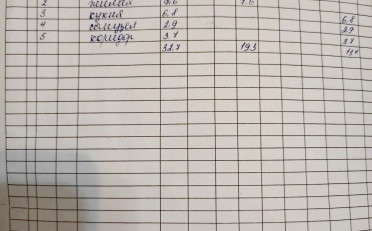 2 жилая 9.6 9.6
3 кухня 6.8 6.8
4 санузел 2.9 2.9
5 коридор 3.1 3.1
32.7 19.3 13.4